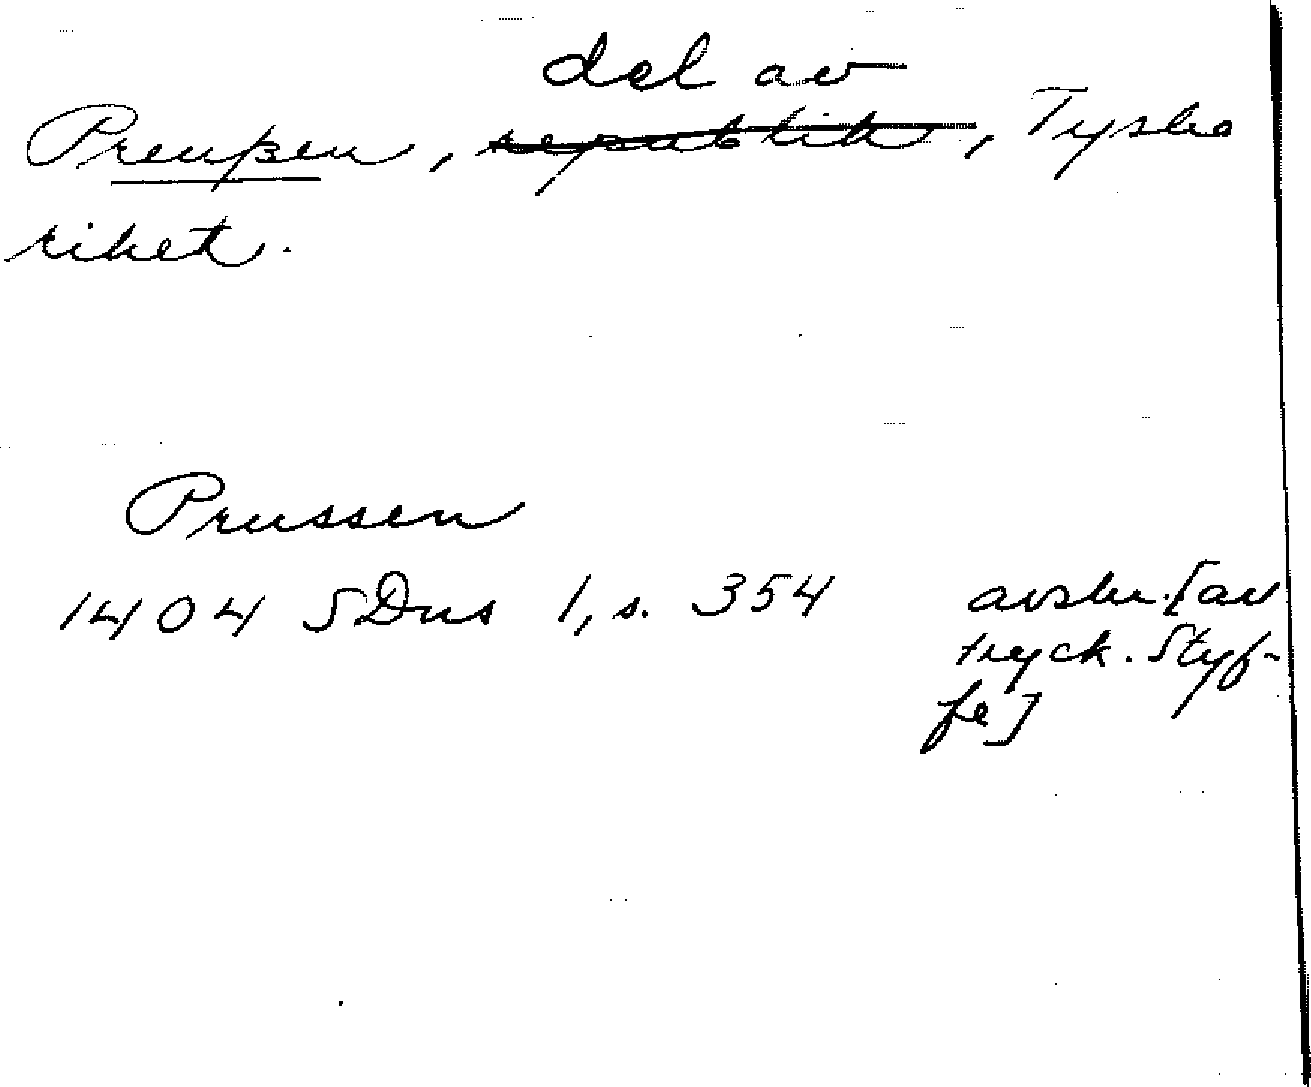 del av
Preußen, republik, Tyska
riket.
Prussen
1404 SDns 1, s. 354 avskr. [av
tryck. Styf-
fe]